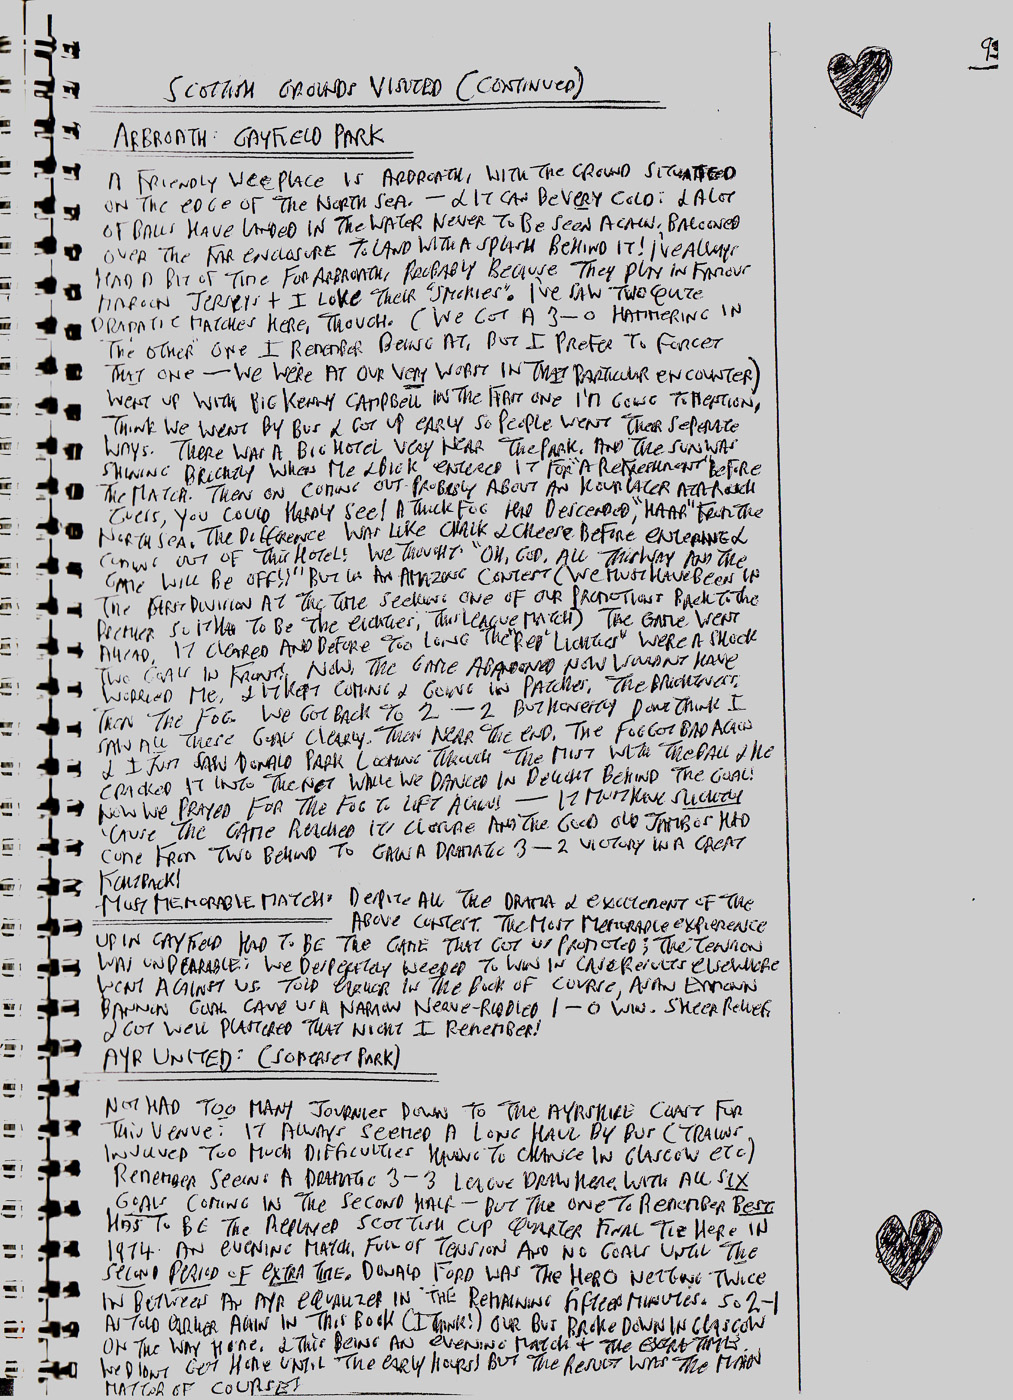 9
SCOTTISH GROUNDS VISITED (CONTINUED)
ARBROATH: GAYFIELD PARK
A FRIENDLY WEE PLACE IS ARBROATH, WITH THE GROUND SITUATED
ON THE EDGE OF THE NORTH SEA. — & IT CAN BE VERY COLD: & A LOT
OF BALLS HAVE LANDED IN THE WATER NEVER TO BE SEEN AGAIN, BALOONED
OVER THE FAR ENCLOSURE TO LAND WITH A SPLASH BEHIND IT! I'VE ALWAYS
HAD A BIT OF TIME FOR ARBROATH, PROBABLY BECAUSE THEY PLAY IN FAMOUS
MAROON JERSEYS + I LOVE THEIR "SMOKIES". I'VE SAW TWO QUITE
DRAMATIC MATCHES HERE, THOUGH. (WE GOT A 3-0 HAMMERING IN
"THE OTHER" ONE I REMEMBER BEING AT, BUT I PREFER TO FORGET
THAT ONE — WE WERE AT OUR VERY WORST IN THAT PARTICULAR ENCOUNTER)
WENT UP WITH BIG KENNY CAMPBELL IN THE FIRST ONE I'M GOING TO MENTION,
THINK WE WENT BY BUS & GOT UP EARLY SO PEOPLE WENT THEIR SEPERATE
WAYS. THERE WAS A BIG HOTEL VERY NEAR THE PARK. AND THE SUN WAS
SHINING BRIGHTLY WHEN ME & DICK ENTERED IT FOR "A REFRESHMENT" BEFORE
THE MATCH. THEN ON COMING OUT PROBABLY ABOUT AN HOUR LATER AT A ROUGH
GUESS, YOU COULD HARDLY SEE! A THICK FOG HAD DESCENDED, "HAAR" FROM THE
NORTH SEA. THE DIFFERENCE WAS LIKE CHALK & CHEESE BEFORE ENTERING &
COMING OUT OF THIS HOTEL! WE THOUGHT "OH, GOD, ALL THIS WAY AND THE
GAME WILL BE OFF!!" BUT IN AN AMAZING CONTEST (WE MUST HAVE BEEN IN
THE FIRST DIVISION AT THE TIME SEEKING ONE OF OUR PROMOTIONS BACK TO THE
PREMIER SO IT HAD TO BE THE EIGHTIES, THIS LEAGUE MATCH) THE GAME WENT
AHEAD, IT CLEARED AND BEFORE TOO LONG THE "RED LICHTIES" WERE A SHOCK
TWO GOALS IN FRONT. NOW, THE GAME ABANDONED NOW WOULDNT HAVE
WORRIED ME, & IT KEPT COMING & GOING IN PATCHES, THE BRIGHTNESS,
THEN THE FOG. WE GOT BACK TO 2 — 2 BUT HONESTLY DONT THINK I
SAW ALL THESE GOALS CLEARLY. THEN NEAR THE END, THE FOG GOT BAD AGAIN
& I JUST SAW DONALD PARK LOOMING THROUGH THE MIST WITH THE BALL & HE
CRACKED IT INTO THE NET WHILE WE DANCED IN DELIGHT BEHIND THE GOAL!
NOW WE PRAYED FOR THE FOG TO LIFT AGAIN! — IT MUST HAVE SLIGHTLY
'CAUSE THE GAME REACHED ITS CLOSURE AND THE GOOD OLD JAMBOS HAD
COME FROM TWO BEHIND TO GAIN A DRAMATIC 3 — 2 VICTORY IN A GREAT
FIGHTBACK!
MOST MEMORABLE MATCH: DESPITE ALL THE DRAMA & EXCITEMENT OF THE
ABOVE CONTEST. THE MOST MEMORABLE EXPERIENCE
UP IN GAYFIELD HAD TO BE THE GAME THAT GOT US PROMOTED; THE TENSION
WAS UNBEARABLE: WE DESPERATELY NEEDED TO WIN IN CASE RESULTS ELSEWHERE
WENT AGAINST US. TOLD EARLIER IN THE BOOK OF COURSE, AN EAMONN
BANNON GOAL GAVE US A NARROW NERVE-RIDDLED 1—0 WIN. SHEER RELIEF,
& GOT WELL PLASTERED THAT NIGHT I REMEMBER!
AYR UNITED: (SOMERSET PARK)
NOT HAD TOO MANY JOURNIES DOWN TO THE AYRSHIRE COAST FOR
THIS VENUE: IT ALWAYS SEEMED A LONG HAUL BY BUS (TRAINS
INVOLVED TOO MUCH DIFFICULTIES HAVING TO CHANGE IN GLASGOW ETC)
REMEMBER SEEING A DRAMATIC 3-3 LEAGUE DRAW HERE, WITH ALL SIX
GOALS COMING IN THE SECOND HALF — BUT THE ONE TO REMEMBER BEST
HAS TO BE THE REPLAYED SCOTTISH CUP QUARTER FINAL TIE HERE IN
1974. AN EVENING MATCH, FULL OF TENSION AND NO GOALS UNTIL THE
SECOND PERIOD OF EXTRA TIME. DONALD FORD WAS THE HERO NETTING TWICE
IN BETWEEN AN AYR EQUALIZER IN THE REMAINING FIFTEEN MINUTES. SO 2-1
AS TOLD EARLIER AGAIN IN THIS BOOK (I THINK!) OUR BUS BROKE DOWN IN GLASGOW
ON THE WAY HOME. & THIS BEING AN EVENING MATCH + THE EXTRA TIME.
WE DIDNT GET HOME UNTIL THE EARLY HOURS! BUT THE RESULT WAS THE MAIN
MATTER OF COURSE!